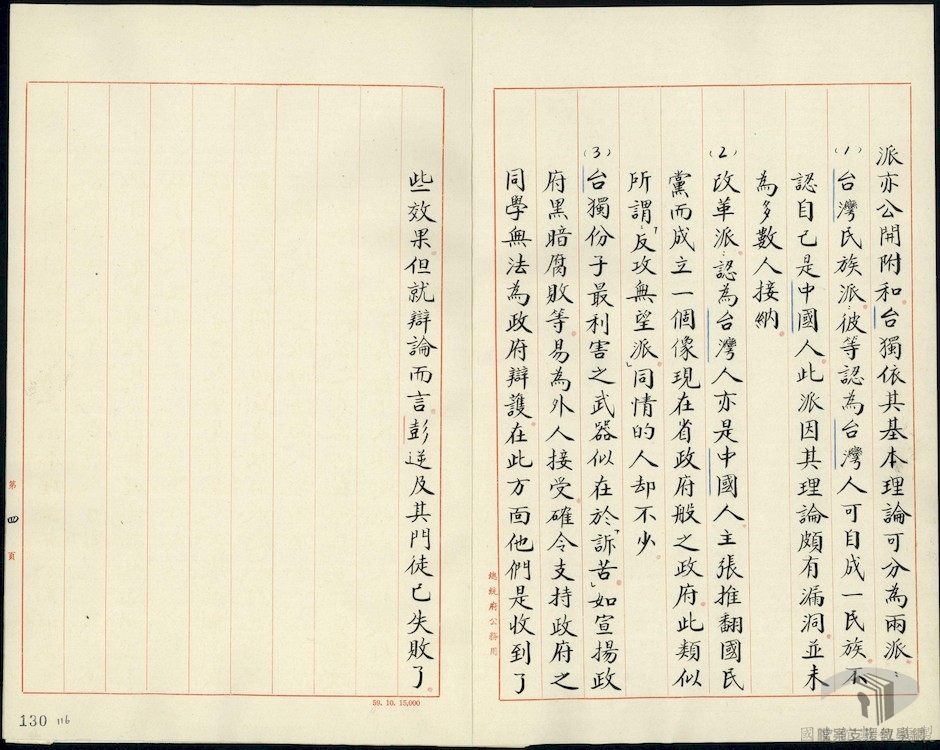 派亦公開附和。台獨依其基本理論可分為兩派:
(1)台灣民族派:彼等認為台灣人可自成一民族。不
認自己是中國人。此派因其理論頗有漏洞。並未
為多數人接納。
(2)改革派:認為台灣人亦是中國人。主張推翻國民
黨而成立一個像現在省政府般之政府。此類似
所謂:「反攻無望派」同情的人却不少。
(3)台獨份子最利害之武器似在於「訴苦」。如宣揚政
府黑暗腐敗等。易為外人接受。確令支持政府之
同學無法為政府辯護。在此方面他們是收到了
總統府公務用
些效果。但就辯論而言。彭逆及其門徒已失敗了。
第四頁
59. 10. 15,000
130 116
國家檔案支援教學網